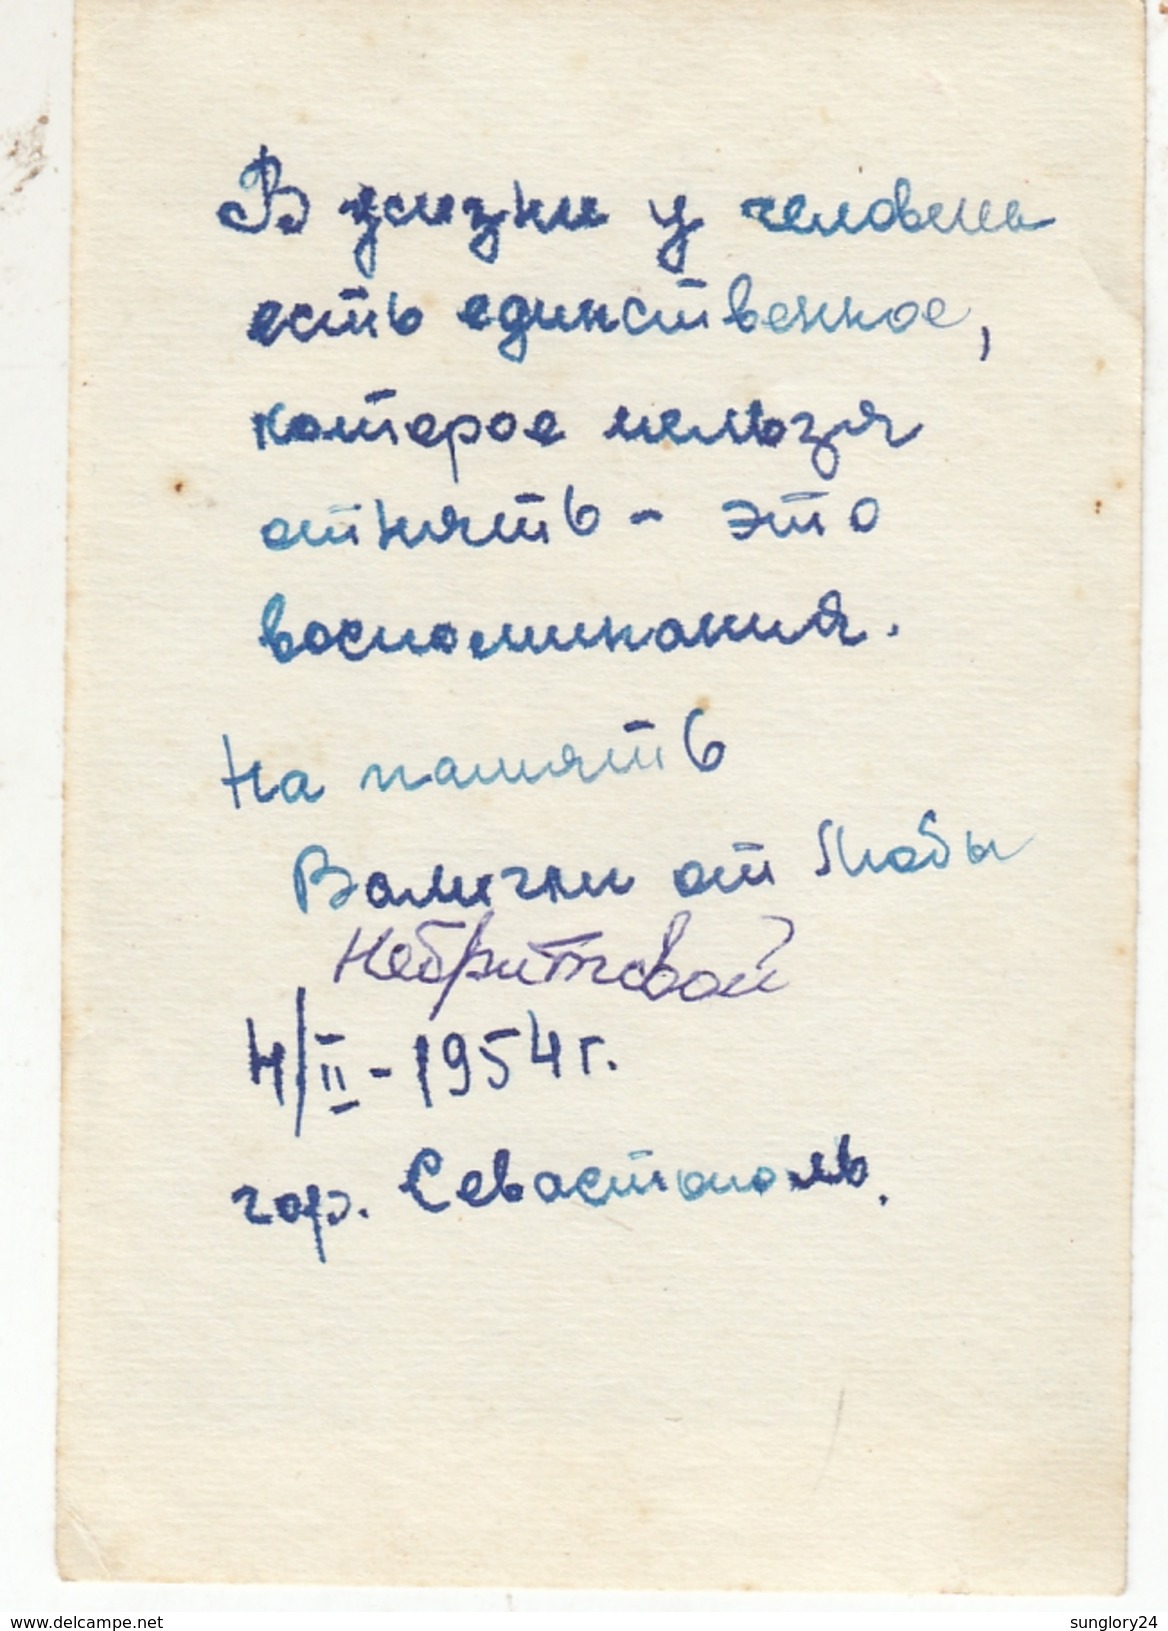 В жизни у человека
есть единственное,
которое нельзя
отнять - это
воспоминания.
На память
Валички от Любы
4/II-1954г.
гор. Севастополь.
www.delcampe.net
sunglory24